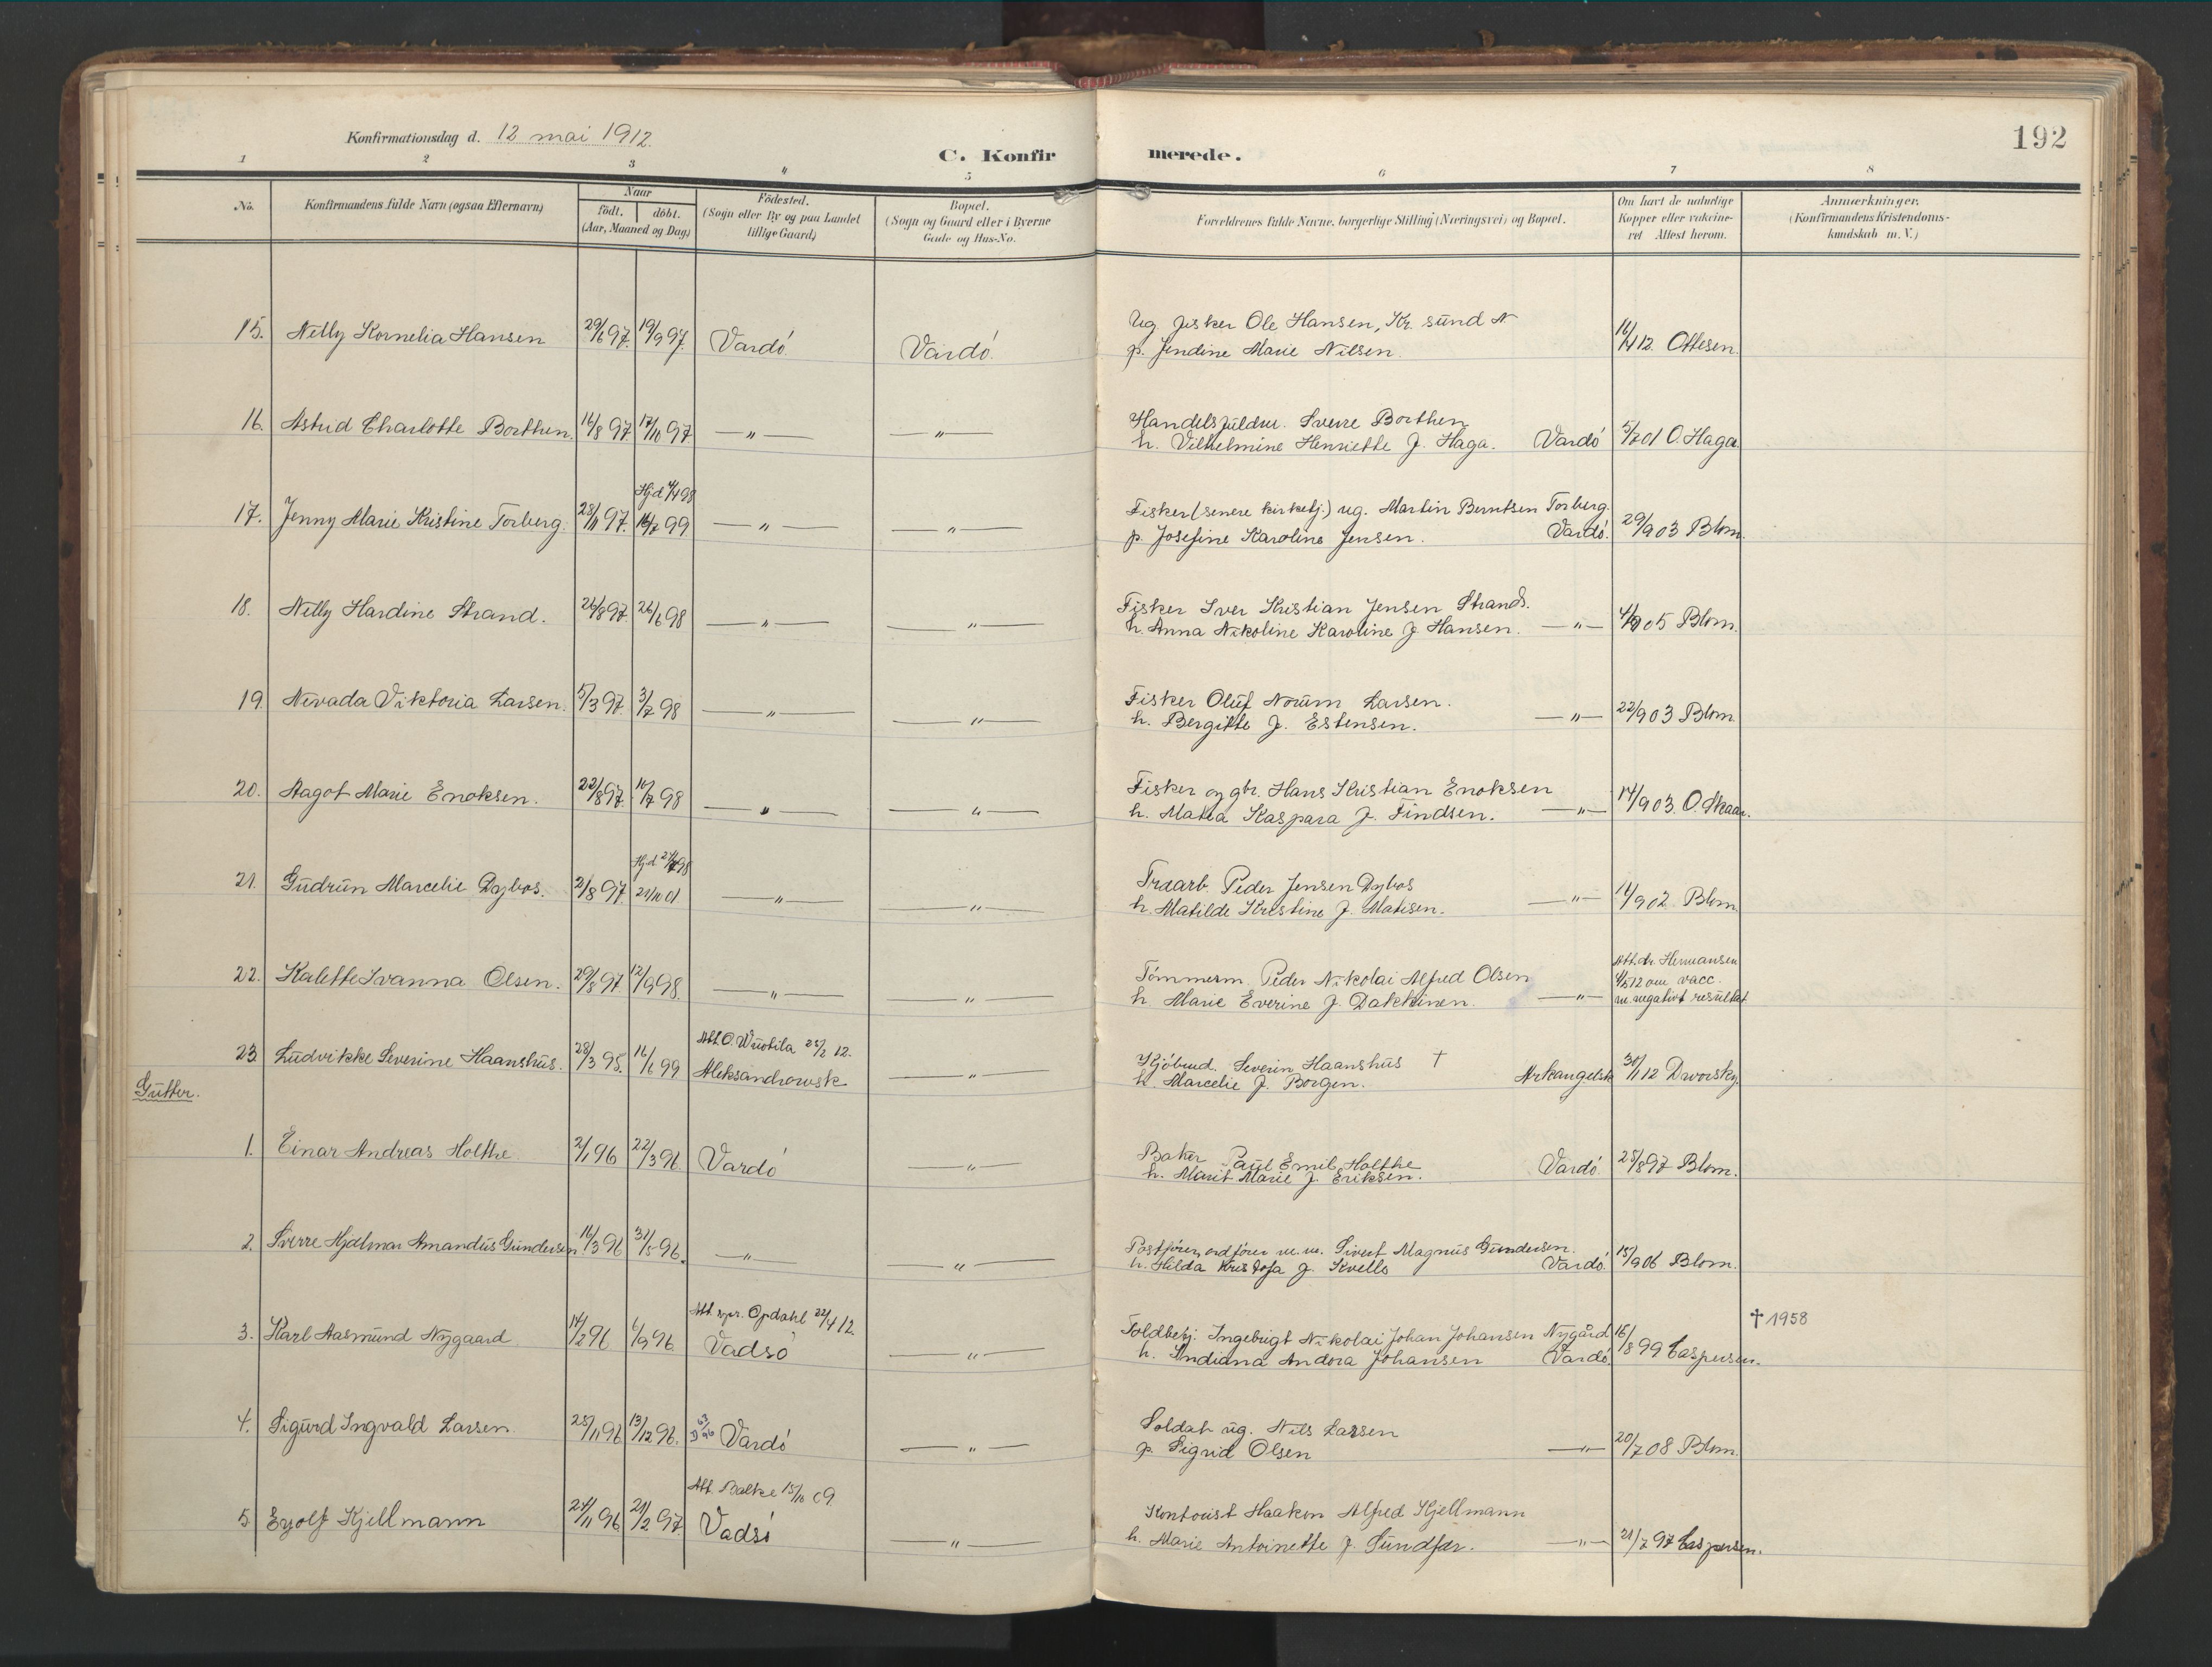 Konfirmationsdag d. 12 mai 1912.
C. Konfirmerede.
192
1 2 3 4 5 6 7 8
No.
Konfirmandens fulde Navn (ogsaa Efternavn)
Naar
født. døbt.
(Aar, Maaned og Dag)
Födested.
(Sogn eller By og paa Landet
tillige Gaard)
Bopæl.
(Sogn og Gaard eller i Byerne
Gade og Hus-No.
Forældrenes fulde Navne, borgerlige Stilling (Næringsvei) og Bopæl.
Om havt de naturlige
Kopper eller vakcine-
ret Attest herom.
Anmærkninger.
(Konfirmandens Kristendoms-
kundskab m. V.)
15. Nelly Kornelia Hansen 29/6 97. 19/9 97. Vardö Vardö.
Ug. fisker Ole Hansen, Kr. sund N
p. Jendine Marie Nilsen.
16/4 12. Ottesen.
16. Astrid Charlotte Borthen. 16/8 97. 17/10 97 — " — — " —
Handelsfuldm. Sverre Borthen
h. Vilhelmine Henriette f. Haga. Vardö
5/7 01 O. Haga
17. Jenny Marie Kristine Torberg. 28/11 97. Hjd 4/4 98
16/7 99 — " — — " —
Fisker (senere kirketj.) ug. Martin Berntsen Torberg.
p. Josefine Karoline Jensen. Vardö.
29/9 03 Blom.
18. Nelly Hardine Strand. 26/8 97. 26/6 98 — " — — " —
Fisker Iver Kristian Jensen Strand.
h. Anna Nikoline Karoline f. Hansen. — " —
05 Blom.
19. Nevada Viktoria Larsen. 5/3 97. 3/7 98 — " — — " —
Fisker Oluf Norum Larsen.
h. Bergitte f. Estensen. — " —
22/9 03 Blom.
20. Aagot Marie Enoksen. 22/8 97. 10/7 98 — " — — " —
Fisker og gbr. Hans Kristian Enoksen
h. Matea Kaspara f. Findsen. — " —
14/9 03. O. Skaar.
21. Gudrun Marcelie Dybos. 2/8 97. Hjd 98
21/10 01 — " — — " —
Traarb. Peder Jensen Dybos
h. Matilde Kristine f. Matisen. — " —
14/9 02 Blom.
22. Kalette Ivanna Olsen. 29/8 97. 12/9 98. — " — — " —
Tömmerm. Peder Nikolai Alfred Olsen
h. Marie Everine f. Dakkinen. — " —
Att. dr. Hermansen
4/5 12 om vacc.
m. negativt resultat
23. Ludvikke Severine Haanshus. 28/3 95. 16/6 99 Att. O. Wuotila 25/2 12.
Aleksandrowsk — " —
Kjöbmd. Severin Haanshus †
h. Marcelie f. Borgen. Arkangelsk
30/11 12 Dworsky.
Gutter.
1. Einar Andreas Holthe 2/1 96 22/3 96. Vardö — " —
Baker Paul Emil Holthe
h. Marit Marie f. Eriksen. Vardö.
28/8 97 Blom.
2. Sverre Hjalmar Amandus Gundersen 16/3 96 31/5 96. — " — — " —
Postfører, ordfører m.m. Sivert Magnus Gundersen.
h. Hilda Kristofa f. Kvello Vardö.
15/9 06 Blom.
3. Karl Aasmund Nygaard 14/2 96 6/9 96. Att. spr. Opdahl 22/4 12.
Vadsö — " —
Toldbetj. Ingebrigt Nikolai Johan Johansen Nygård
h. Indiana Andora Johansen Vardö.
16/8 99 Caspersen.
† 1958
4. Sigurd Ingvald Larsen. 25/11 96 13/12 96. D 63/96 Vardö — " —
Soldat ug. Nils Larsen
p. Sigrid Olsen — " —
20/7 08 Blom.
5. Eyolf Kjellmann 24/11 96 21/2 97. Att. Balke 15/10 09
Vadsö — " —
Kontorist Haakon Alfred Kjellmann
h. Marie Antoinette f. Sundfær. — " —
21/7 97 Caspersen.